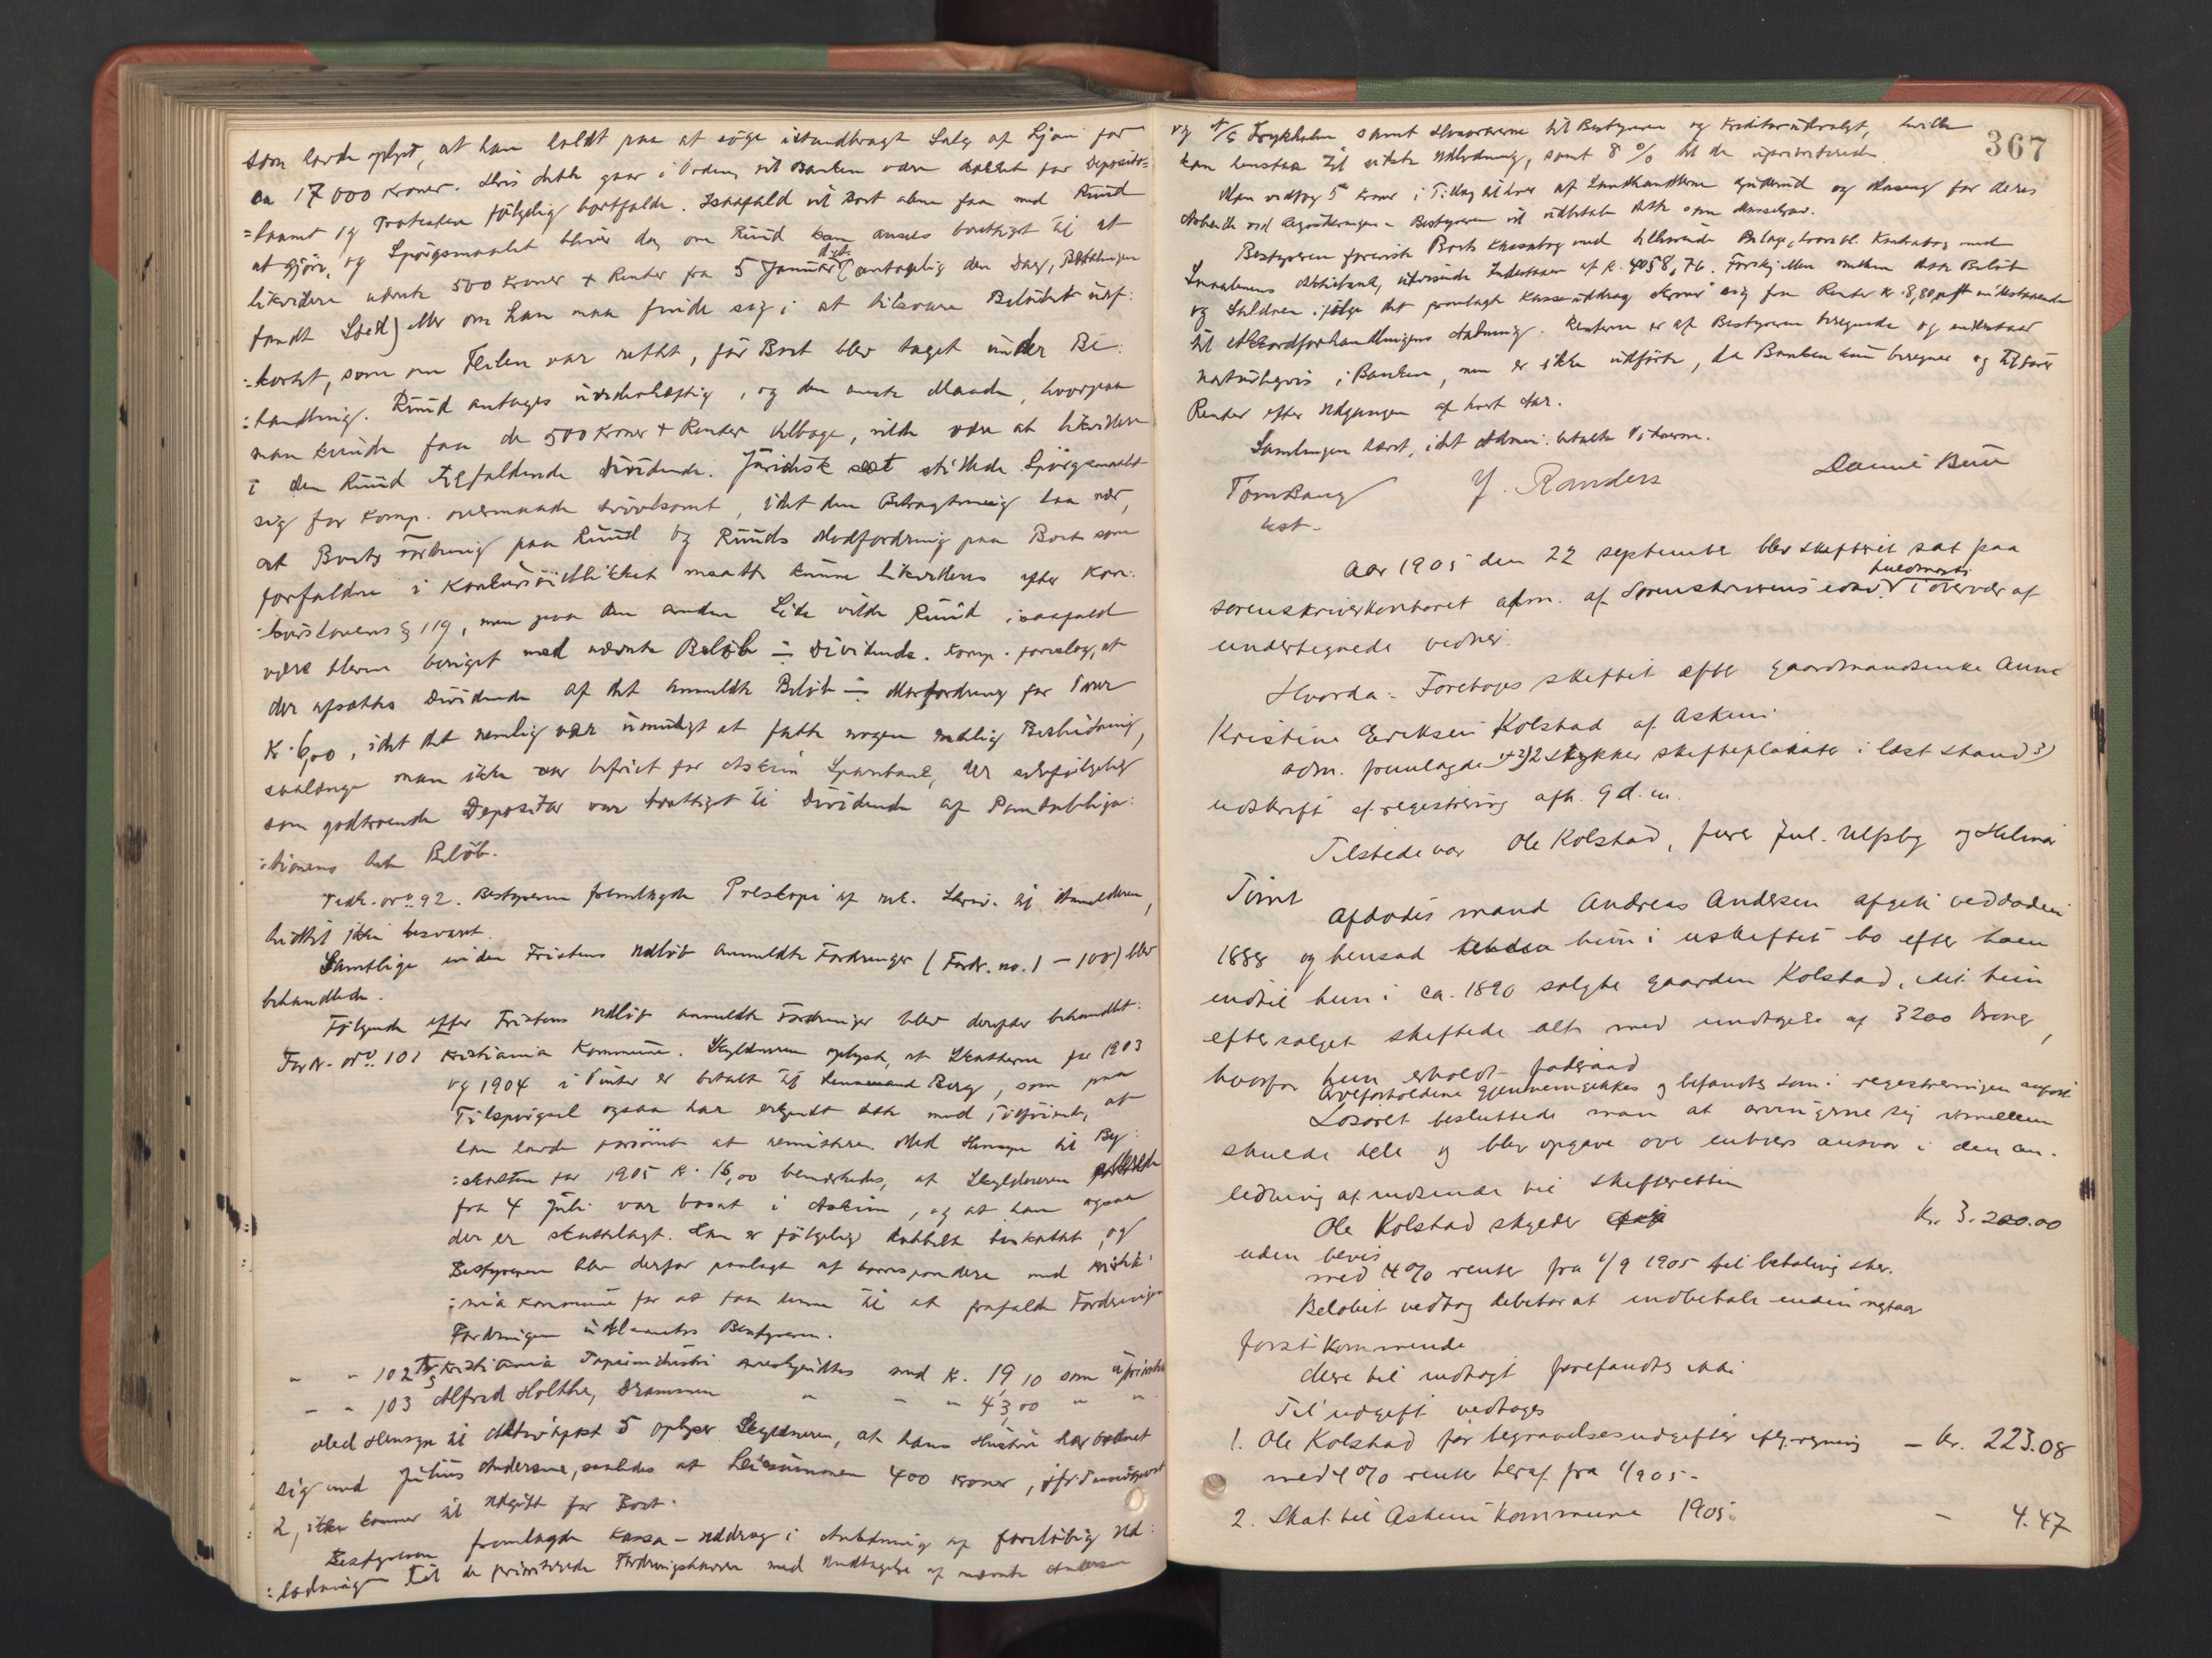 som havde oplyst, at han holdt paa at søge istandbragt Salg af Ljan for
ca 17000 Kroner. Hvis dette gaar i Orden, vil Banken være dækket for Deposito=
=haand og Protesten følgelig bortfalde. Isaafald vil Bort alene faa med Ruud
at gjøre, og Spørgsmaalet bliver da, om Ruud kan ansees berettiget til at
likvidere nævnte 500 Kroner + Renter fra 5 Januar (antagelig den Dag, Betalingen
fandt Sted) eller om han maa finde sig i at tilsvare Beløbet uaf:
:kortet, som om Feilen var rettet, før Boet blev taget under Be:
:handling. Ruud antages uvederhæftig, og den eneste Maade, hvorpaa
man kunde faa de 500 Kroner + Renter tilbage, vilde være at likvidere
i den Ruud tilfaldende Dividende. Juridisk seet stillede Spørgsmaalet
sig for Komp. overmaade tvivlsomt, idet den Betragtning laa nær,
at Boets Fordring paa Ruud og Ruuds Modfordring paa Boet som
forfaldne i Konkursøieblikket maatte kunne likvideres efter Kon:
:kurslovens § 119, men paa den anden Side vilde Ruud isaafald
være bleven beriget med nævnte Beløb ÷ Dividende. Komp. foreslog, at
der afsættes Dividende af det anmeldte Beløb ÷ Modfordring for Varer
Kr. 6,00, idet det nemlig var umuligt at fatte nogen endelig Beslutning,
saalænge man ikke var befriet for Askim Sparebank, der selvfølgelig
som godtroende Depositar var berettiget til Dividende af Panteobliga:
:tionens hele Beløb.
Vedk. No. 92. Bestyreren fremlagde Preskopi af rek. Skriv. til Anmelderen,
hidtil ikke besvaret.
Samtlige inden Fristens Udløb anmeldte Fordringer (Fordr. no. 1 – 100) blev
behandlede.
Følgende efter Fristens Udløb anmeldte Fordringer blev derefter behandlet:
Fordr. No. 101 Kristiania Kommune. Skyldneren oplyste, at Skatterne for 1903
og 1904 i Vinter er betalt til Lensmand Berg, som paa
Tilspørgsel ogsaa har erkjendt dette med Tilføiende, at
han havde forsømt at remittere. Med Hensyn til By:
:skatten for 1905 Kr. 16,00 bemærkedes, at Skyldneren
fra 4 Juli var bosat i Askim, og at han ogsaa
der er skattelagt. Han er følgelig dobbelt beskattet, og
Bestyreren blev derfor paalagt at korrespondere med Kristi:
:ania Kommune for at faa denne til at frafalde Fordringen
Fordringen udleveredes Bestyreren.
" " 102 Kristiania Papirindustri anerkjendtes med Kr. 19,10 som uprioritert
" " 103 Alfred Holthe, Drammen " " " 43,00 " "
Med Hensyn til Aktivpost 5 oplyser Skyldneren, at hans Hustru har ordnet
sig med Julius Andersen, saaledes at Leiesummen 400 Kroner, jfr Passivpost
2, ikke kommer til Udgift for Boet.
Bestyreren fremlagde Kassa-Uddrag i Anledning af foreløbig Ud:
:lodningen til de prioriterede Fordringshavere med Undtagelse af nævnte Andersen

367
og A/S Trykkelen samt Honorarerne til Bestyrer og Kreditorudvalget, hvilke
kan henstaa til sidste Udlodning, samt 8 % til de uprioriterede.
Man vedtog 5 Kroner i Tillæg til hver af Landhandlerne Gudmud og Hasing for deres
Arbeide ved Registreringen. Bestyreren vil udbetale dette som Massekrav.
Bestyreren foreviste Boets Kassabog med tilhørende Bilage, hvorbl. Kontrabog med
Smaalenens Aktiebank, udvisende Indestaaende af Kr. 4058,76. Forskjellen mellem dette Beløb
og Saldoen ifølge det fremlagte Kasseuddrag skriver sig fra Renter Kr. 8,80
til Akkordforhandlingens Aabning. Renterne er af Bestyreren beregnede og indestaar
naturligvis i Banken, men er ikke udførte, da Banken kun beregner og tilfører
Renter efter Udgangen af hvert Aar.
Samlingen hævet, idet Admin. betalte Vidnerne.
Tom Haug Y. Randers Daniel Buer
kst.
Aar 1905 den 22 september blev skifteret sat paa
sorenskriverkontoret adm. af Sorenskriverens edsv. fuldmægtig i overvær af
undertegnede vidner.
Hvorda: Foretoges skiftet efter gaardmandsenke Anne
Kristine Eriksen Kolstad af Askim.
Adm. fremlagde 1+2) 2 stykker skifteplakater i læst stand 3)
udskrift af registrering afh. 9 d. m.
Tilstede var Ole Kolstad, furer Jul. Ulfsby og Hilmar
Timt
Afdødes mand Andreas Andersen afgik ved døden
1888 og hensad hun i uskiftet bo efter ham
indtil hun i ca. 1890 solgte gaarden Kolstad, idet hun
efter salget skiftede alt med undtagelse af 3200 kroner,
hvorfor hun erholdt føderaad
Arveforholdene gjennemgikkes og befandtes som i registreringen anført
Løsøret besluttede man at arvingerne sig imellem
skulde dele og blev opgave over enhvers ansvar i den an-
ledning at indsende til skifteretten
Ole Kolstad skylder kr. 3.200.00
uden bevis
med 4% renter fra 1/9 1905 til betaling sker.
Beløbet vedtog debitor at indbetale inden nytaar
førstkommende
Mere til indtægt forefandtes ikke
Til udgift vedtoges
1. Ole Kolstad for begravelsesudgifter iflg. regning – kr. 223.08
med 4% renter heraf fra 1/9 05 –
2. Skat til Askim kommune 1905 – 4.47